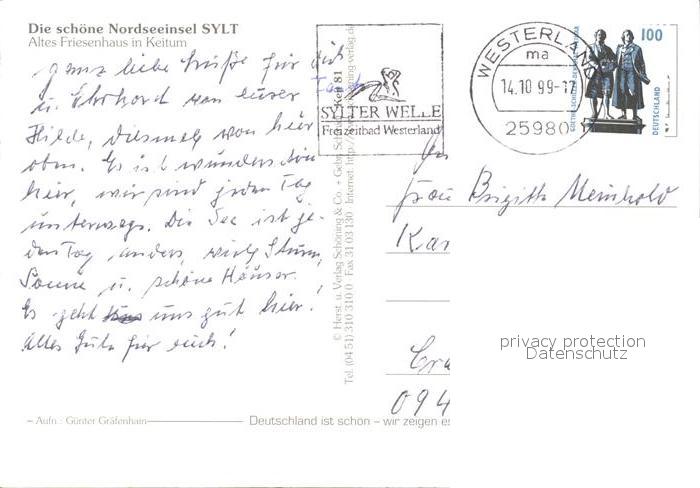 Die schöne Nordseeinsel SYLT
Altes Friesenhaus in Keitum
ganz liebe Grüße für dich
u. Ehrhard von eurer
Hilde, diesmal von hier
oben. Es ist wunderschön
hier, wir sind jeden Tag
unterwegs. Die See ist je-
den Tag anders, viel Sturm,
Sonne u. schöne Häuser.
Es geht uns gut hier!
Alles Gute für euch!
Aufn.: Günter Gräfenhain
Deutschland ist schön – wir zeigen es
© Herst. u. Verlag Schöning & Co. + Gebr. Schmidt
Tel. (04 51) 310 310 0 · Fax 31 03 130 · Internet: http://
Keit 81
SYLTER WELLE
Freizeitbad Westerland
WESTERLAND
ma
14.10 99-17
25980
100
DEUTSCHLAND
Frau Brigitte Meinhold
Kar
Cra
094
privacy protection
Datenschutz